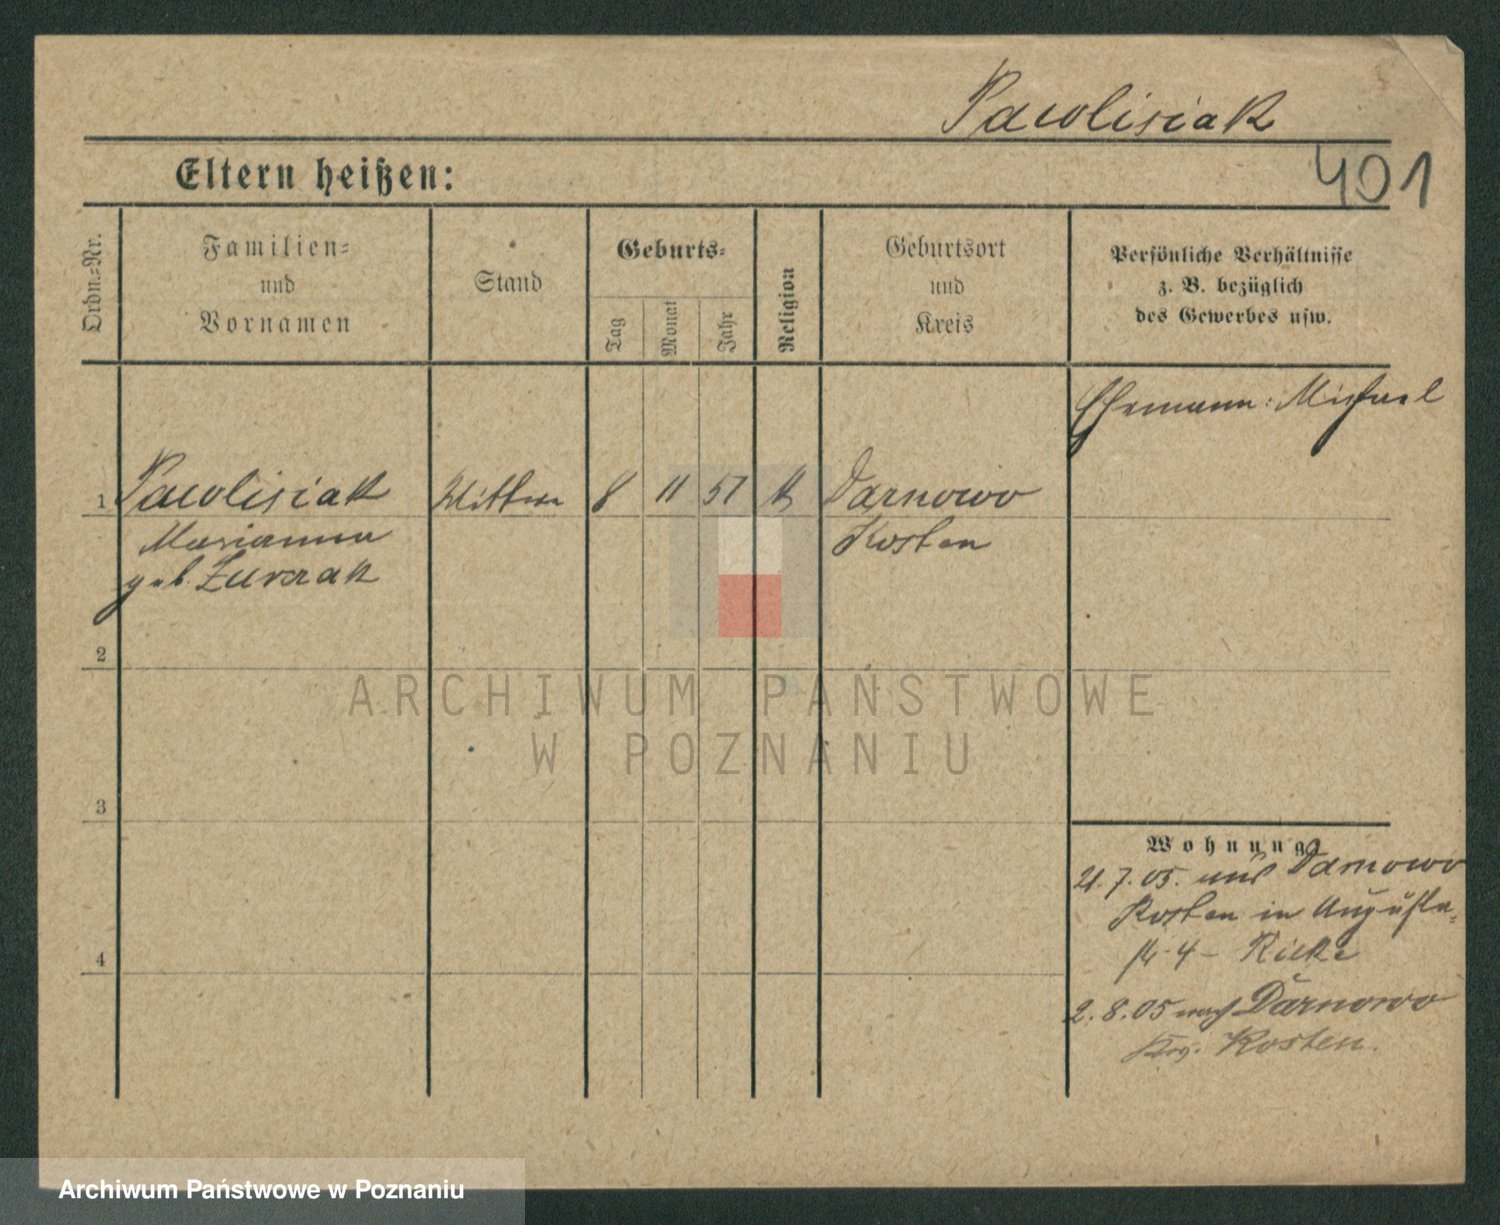 Pawlisiak
401
Eltern heißen:
Ordn.=Nr.
Familien=
und
Vornamen
Stand
Geburts=
Tag
Monat
Jahr
Religion
Geburtsort
und
Kreis
Persönliche Verhältnisse
z. B. bezüglich
des Gewerbes usw.
Ehemann: Michael
1 Pawlisiak Wittwe 8 11 51 k Darnowo
Marianna Kosten
geb.
2
ARCHIWUM PAŃSTWOWE
W POZNANIU
3
Wohnung
21.7.05. aus Darnowo
Kosten in Augusta-
str. 4 –
4
2.8.05 nach Darnowo
Krs. Kosten.
Archiwum Państwowe w Poznaniu